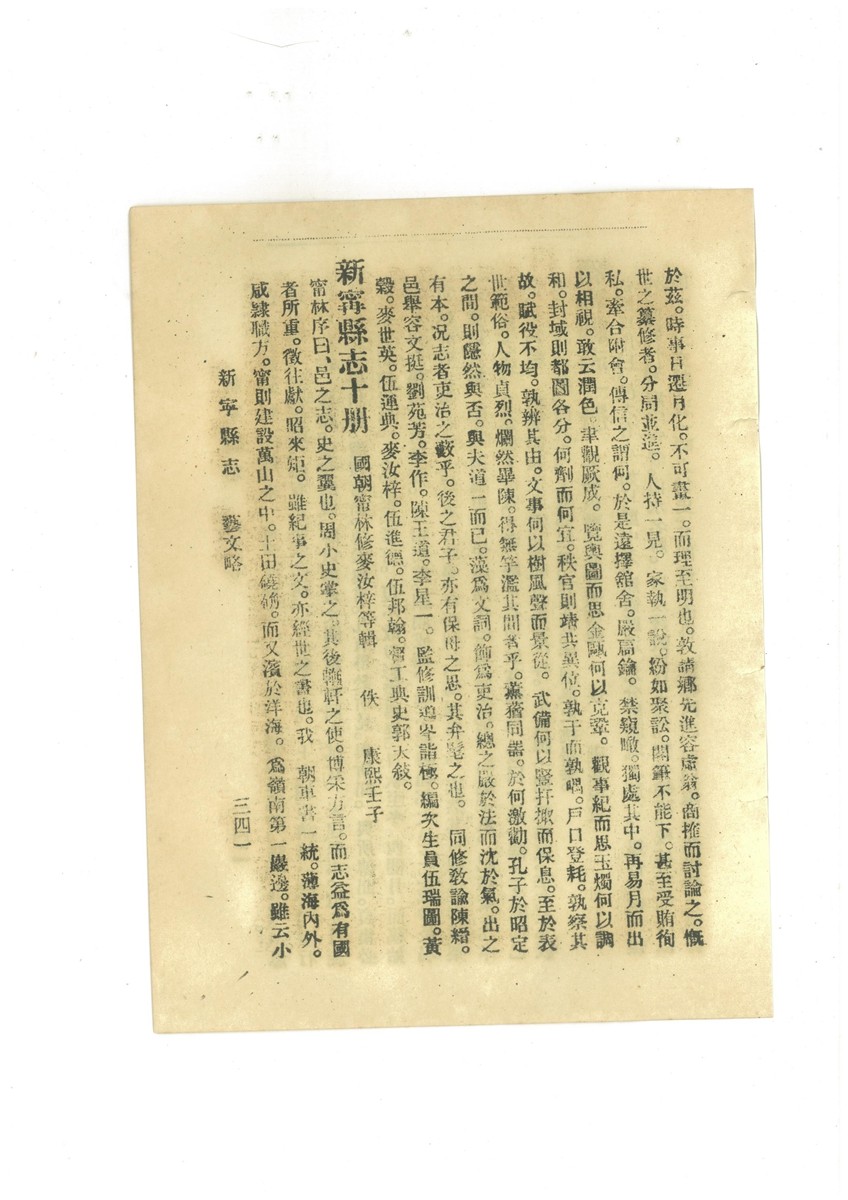 於茲。時事日遷月化。不可畫一。而理至明也。敦請鄉先進容肅翁。商搉而討論之。慨
世之纂修者。分局並進。人持一見。家執一說。紛如聚訟。閣筆不能下。甚至受賄徇
私。牽合附會。傳信之謂何。於是遠擇館舍。嚴扃鑰。禁窺瞰。獨處其中。再易月而出
以相視。敢云潤色。聿觀厥成。覽輿圖而思金甌何以克鞏。觀事紀而思玉燭何以調
和。封域則都圖各分。何劑而何宜。秩官則靖共異位。孰于而孰喁。戶口登耗。孰察其
故。賦役不均。孰辨其由。文事何以樹風聲而景從。武備何以豎扞掫而保息。至於表
世範俗。人物貞烈。爛然畢陳。得無竽濫其間者乎。薰蕕同器。於何激勸。孔子於昭定
之間。則隱然與否。與夫道一而已。藻爲文詞。飾爲吏治。總之嚴於法而沈於氣。出之
有本。况志者吏治之藪乎。後之君子。亦有保母之思。其弁髦之也。 同修敎諭陳縉。
邑舉容文挺。劉苑芳。李作。陳王道。李星一。監修訓導岑詣極。編次生員伍瑞圖。黃
穀。麥世英。伍運典。麥汝梓。伍進德。伍邦翰。督工典史郭大敍。
新甯縣志十册 國朝甯林修麥汝梓等輯 佚 康熙壬子
甯林序曰、邑之志。史之翼也。周小史掌之。其後輶軒之使。博采方言。而志益爲有國
者所重。徵往獻。昭來矩。雖紀事之文。亦經世之書也。我 朝車書一統。薄海內外。
咸隷職方。甯則建設萬山之中。土田磽确。而又濱於洋海。爲嶺南第一巖邊。雖云小
新寧縣志 藝文略 三四一